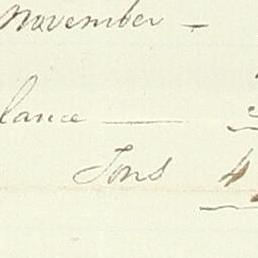 November -
lance —
Tons 4